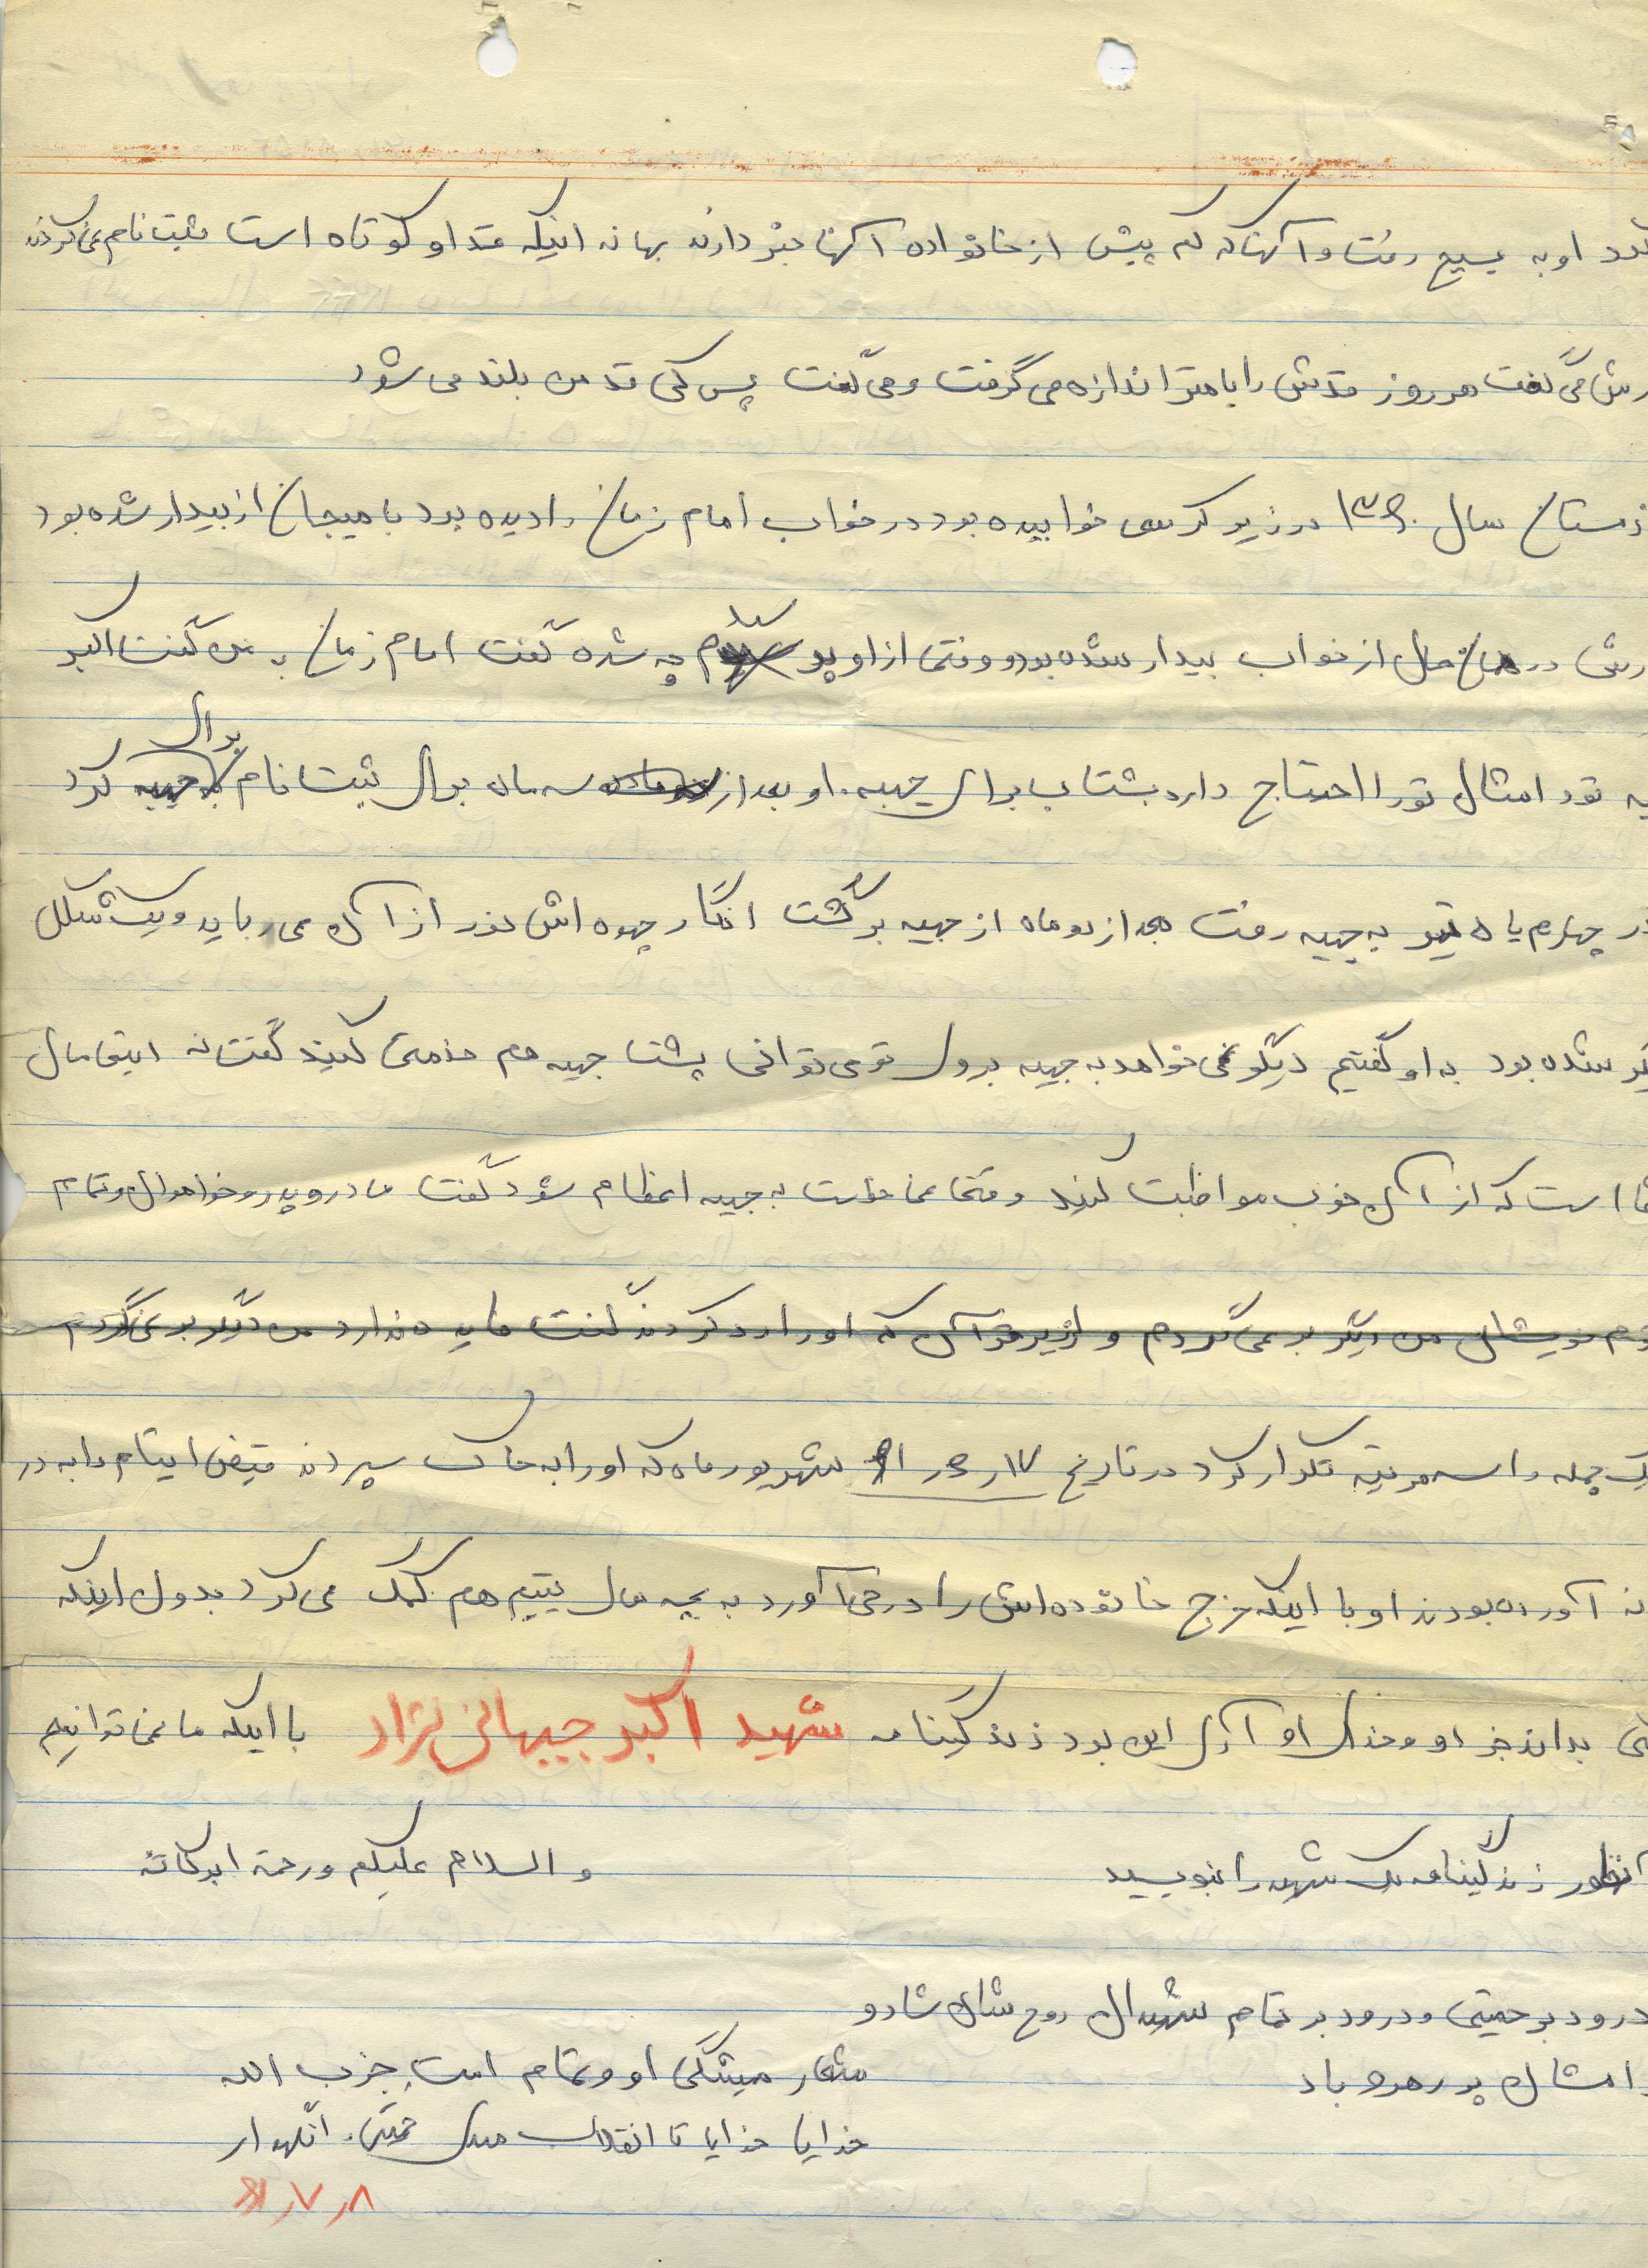 او به بسیج رفت و آنها که پیش از خانواده آنها خبر دارند بهانه اینکه قد او کوتاه است ثبت نام نمی‌کردند
رش می‌گفت هر روز قدش را با متر اندازه می‌گرفت و می‌گفت پس کی قد من بلند می شود
زمستان سال ۱۳۶۰ در زیر کرسی خوابیده بود در خواب امام زمان را دیده بود با هیجان از بیدار شده بود
رش در همان حال از خواب بیدار شده بود و وقتی از او پرسیدم چه شده گفت امام زمان به من گفت اکبر
به تو و امثال تو را احتیاج دارد بشتاب برای جبهه. او بعد از سه ماه برای ثبت نام برای جبهه کرد
در چهارم یا ۵ تیر به جبهه رفت بعد از دو ماه از جبهه برگشت انگار چهره اش نور از آن می رباید و یک شکل
شده بود به او گفتیم دیگر نمی خواهد به جبهه بروی تو می توانی پشت جبهه هم خدمتی کنید گفت نه این مال
شما است که از آن خوب مواظبت کنید وقتی می خواست به جبهه اعظام شود گفت مادر و پدر و خواهران و تمام
قوم خویشان من دیگر بر نمی گردم و از زیر قرآن که او را رد کردند گفت فایده ندارد من دیگر بر نمی گردم
یک جمله را سه مرتبه تکرار کرد در تاریخ ۱۷ر۶ر۶۱ شهریور ماه که او را به خاک سپردند قبض ایتام را به در
نه آورده بودند او با اینکه خرج خانوده اش را در می آورد به بچه های یتیم هم کمک می کرد بدون اینکه
بداند جز او و خدای او آری این بود زندگینامه شهید اکبر جیهانی نژاد با اینکه ما نمی توانیم
آنطور زندگینامه یک شهید را بنویسید
والسلام علیکم و رحمة ابرکاته
درود بر خمینی و درود بر تمام شهدای روح شان شاد و
امشان پر رهرو باد
شعار همیشگی او و تمام امت حزب الله
خدایا خدایا تا انقلاب مهدی خمینی را نگهدار
۸ر۷ر۶۱